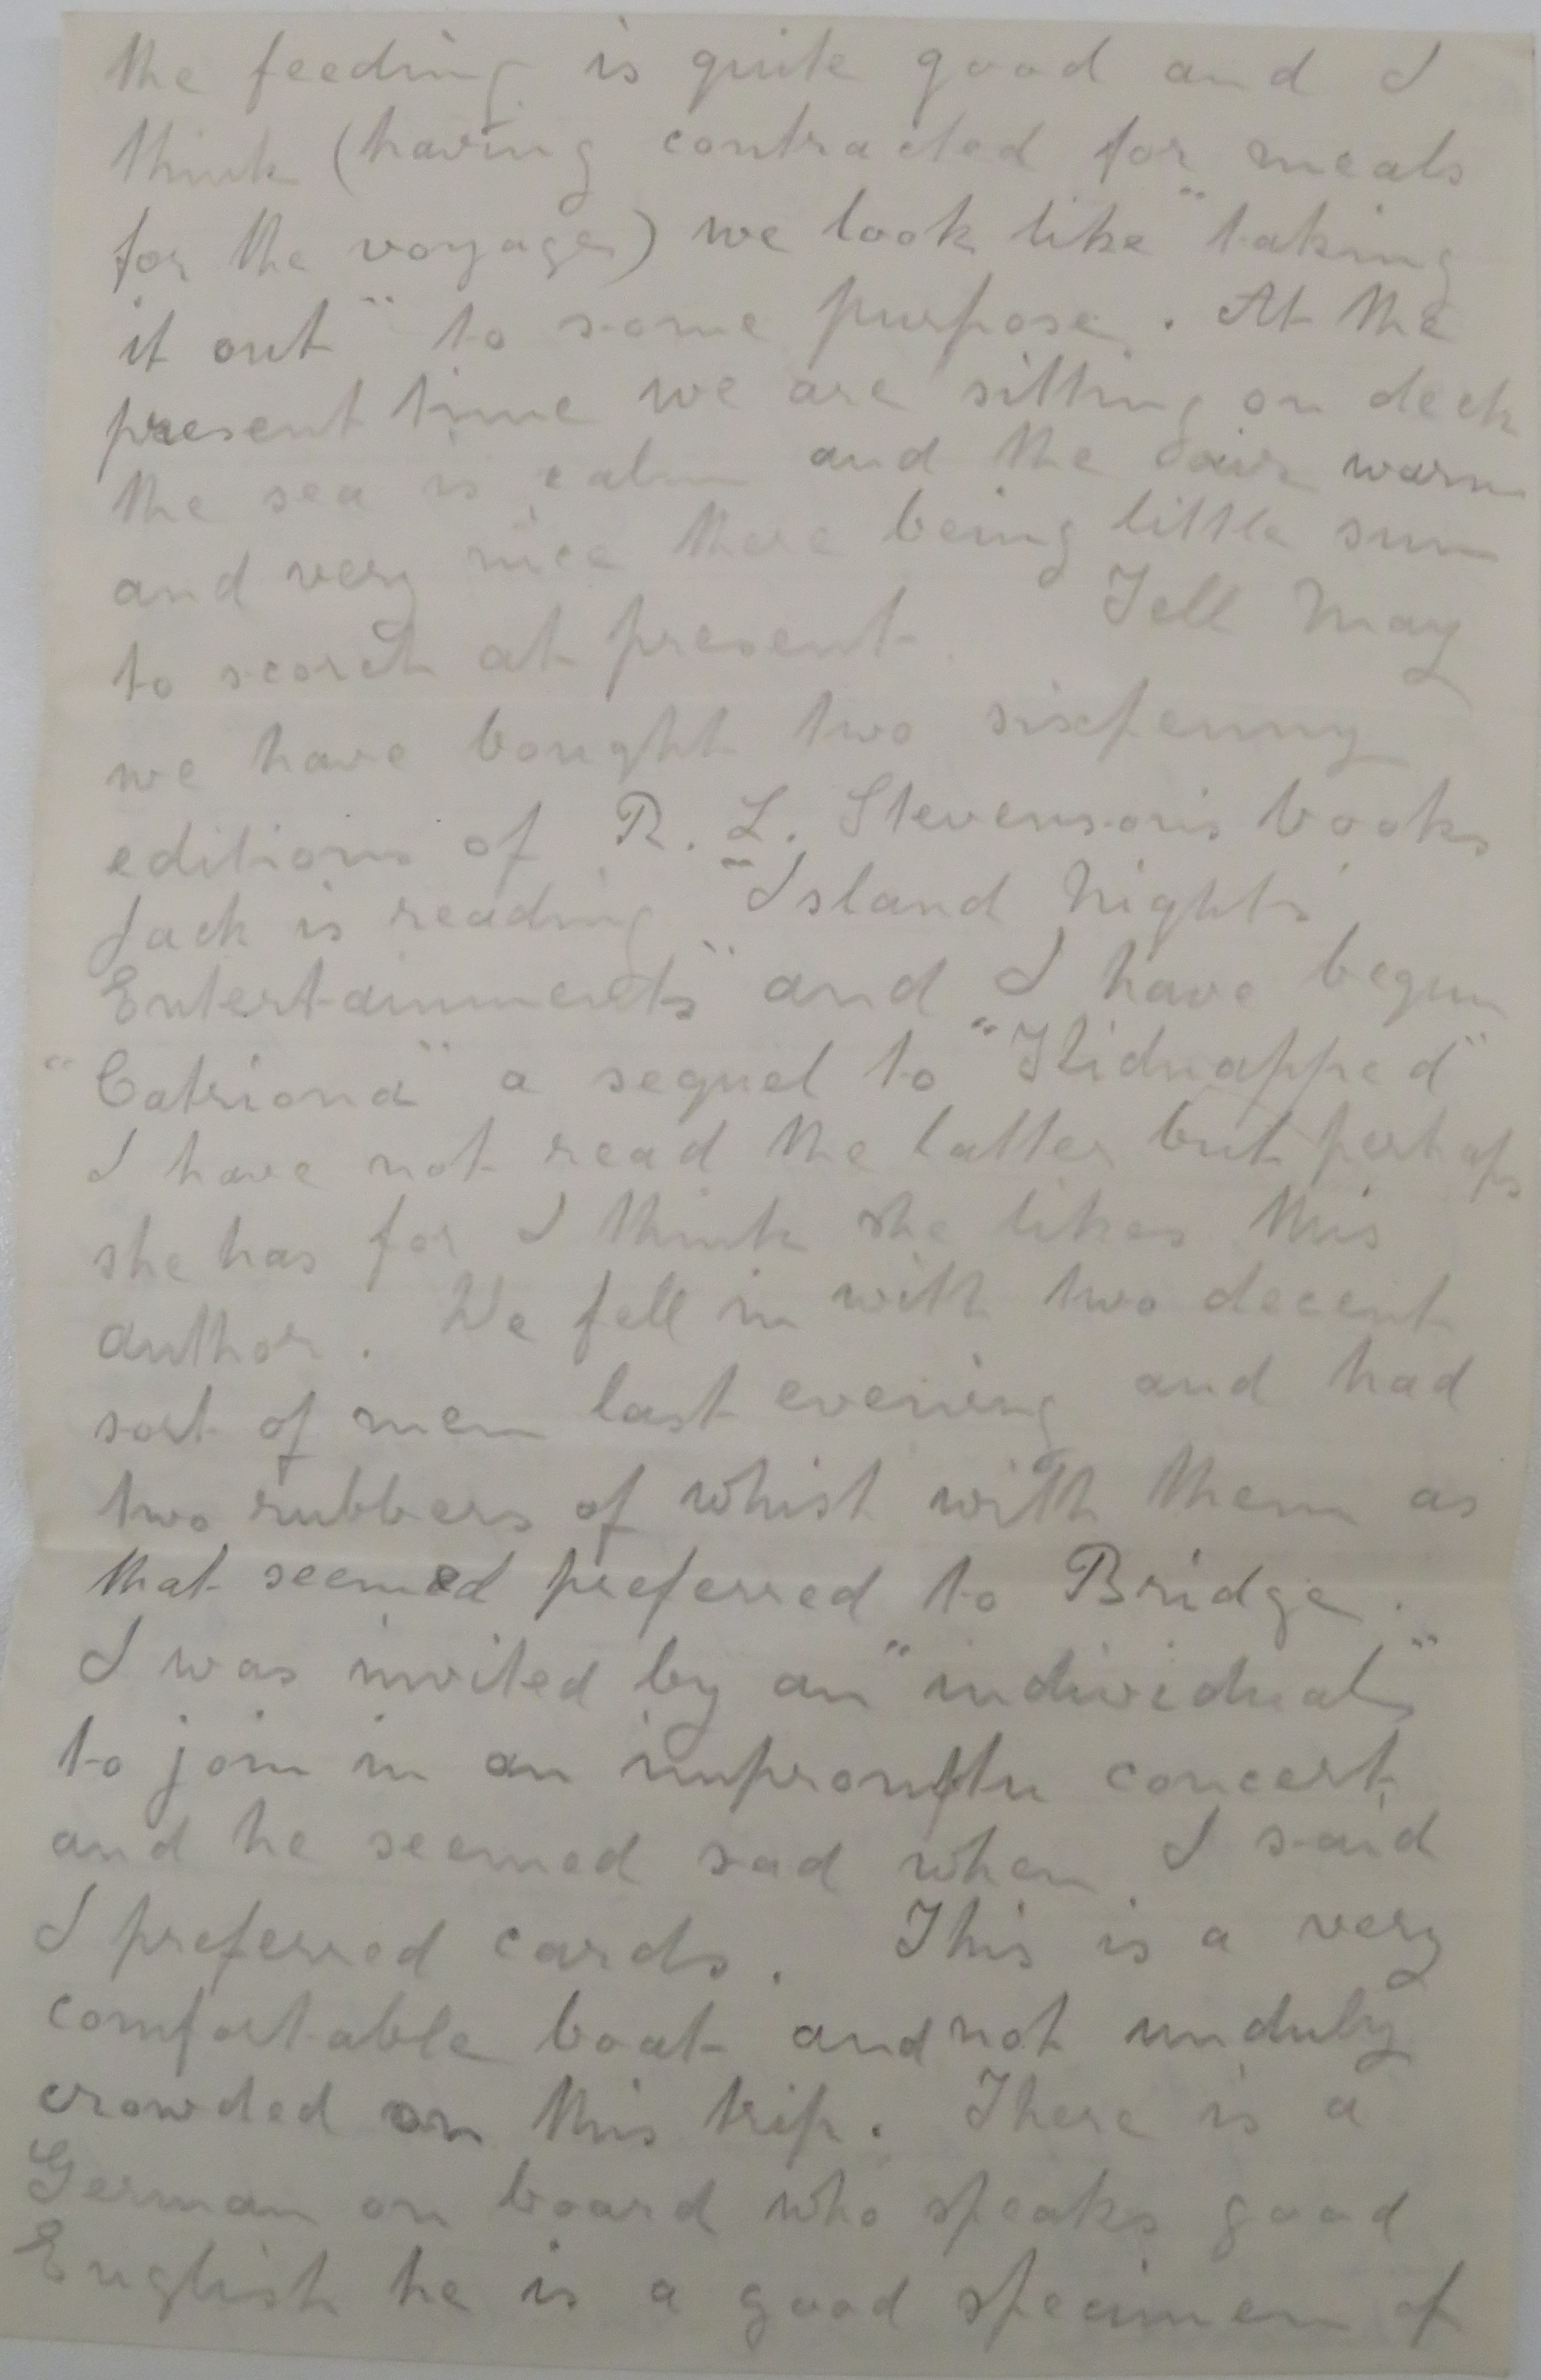 the feeding is quite good and I
think (having contracted for meals
for the voyage) we look like "taking
it out" to some purpose. At the
present time we are sitting on deck
the sea is calm and the air warm
and very nice there being little sun
to scorch at present. Tell May
we have bought two sixpenny
editions of R. L. Stevenson's books
Jack is reading "Island Nights
Entertainments" and I have begun
"Catriona" a sequel to "Kidnapped"
I have not read the latter but perhaps
she has for I think she likes this
author. We fell in with two decent
sort of men last evening and had
two rubbers of whist with them as
that seemed preferred to Bridge.
I was invited by an "individual"
to join in an impromptu concert
and he seemed sad when I said
I preferred cards. This is a very
comfortable boat and not unduly
crowded on this trip. There is a
German on board who speaks good
English he is a good specimen of